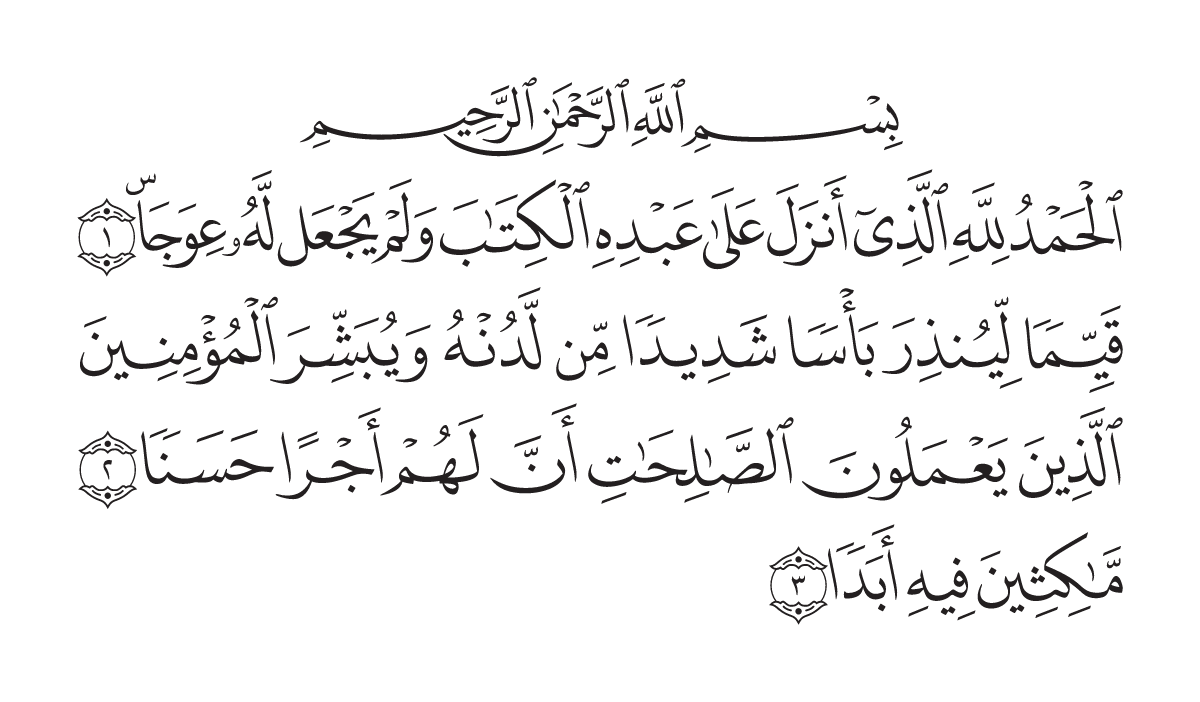 بِسْمِ ٱللَّهِ ٱلرَّحْمَٰنِ ٱلرَّحِيمِ
ٱلْحَمْدُ لِلَّهِ ٱلَّذِىٓ أَنزَلَ عَلَىٰ عَبْدِهِ ٱلْكِتَٰبَ وَلَمْ يَجْعَل لَّهُۥ عِوَجَاۜ ١
قَيِّمًا لِّيُنذِرَ بَأْسًا شَدِيدًا مِّن لَّدُنْهُ وَيُبَشِّرَ ٱلْمُؤْمِنِينَ
ٱلَّذِينَ يَعْمَلُونَ ٱلصَّٰلِحَٰتِ أَنَّ لَهُمْ أَجْرًا حَسَنًا ٢
مَّٰكِثِينَ فِيهِ أَبَدًا ٣